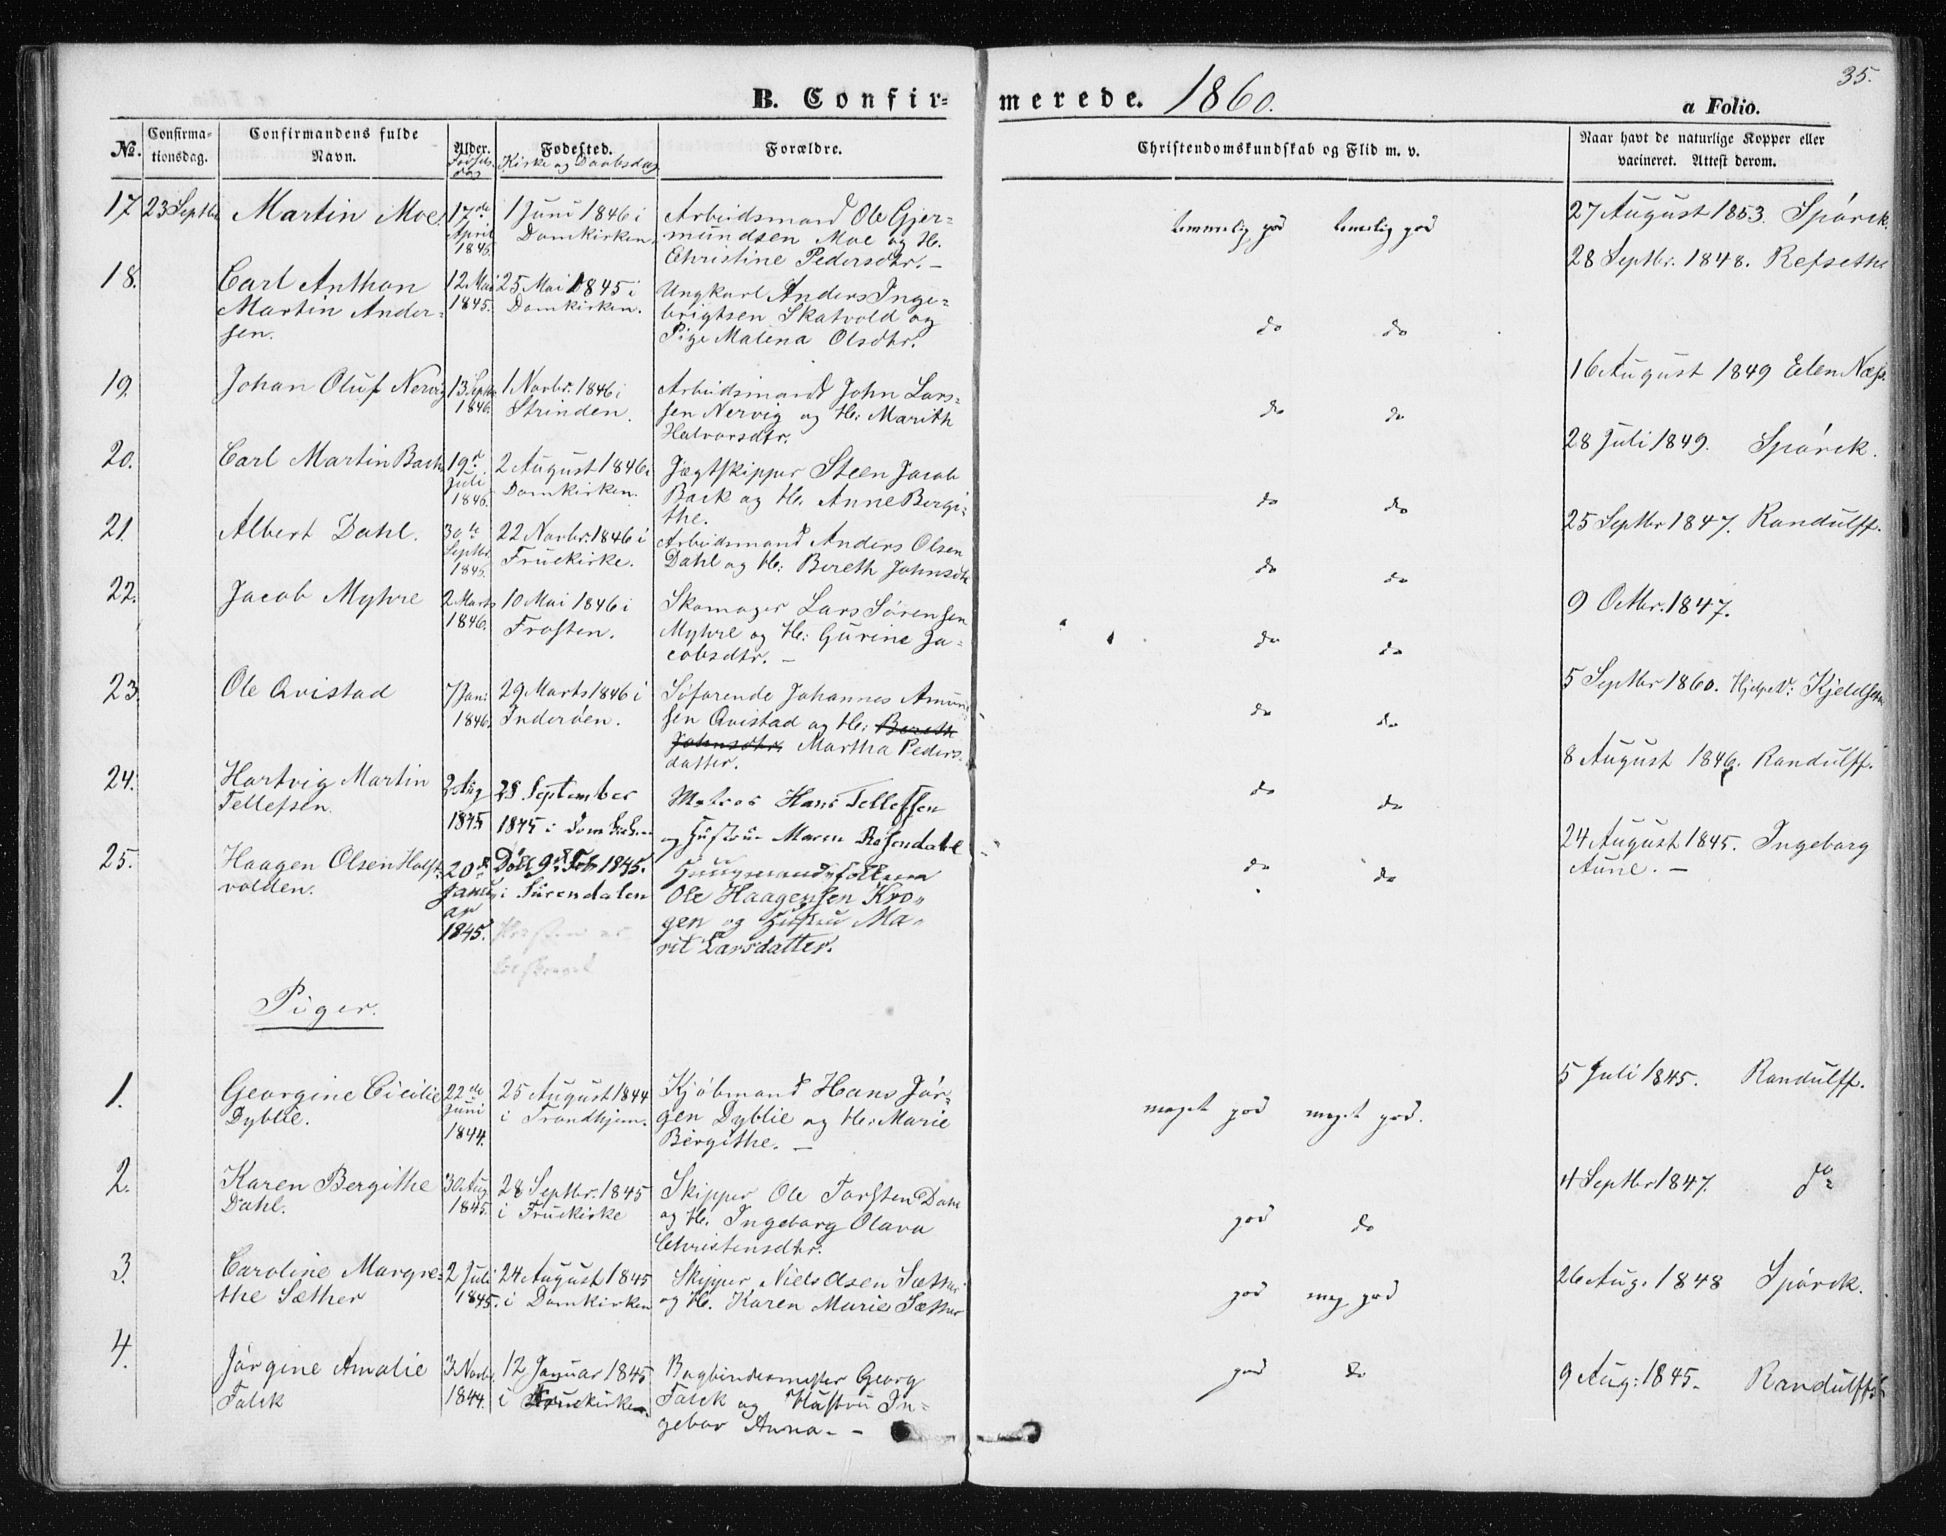 35.
B. Confir- merede. 1860. a Folio.
No. Confirma-
tionsdag. Confirmandens fulde
Navn. Alder.
Fødsels-
dag Fødested.
Kirke og Daabsdag Forældre. Christendomskundskab og Flid m. v. Naar havt de naturlige Kopper eller
vacineret. Attest derom.
17. 23 Septbr Martin Moe. 17de
April
1846. 1 Juni 1846 i
Domkirken. Arbeidsmand Ole Gjer-
mundsen Moe og H.
Christine Pedersdtr. – temmelig god temelig god 27 August 1853. Spörck.
18. Carl Anthon
Martin Ander-
sen. 12 Mai
1845. 25 Mai 1845 i
Domkirken. Ungkarl Anders Inge-
brigtsen Skatvold og
Pige Malena Olsdtr. do do 28 Septbr. 1848. Refseth
19. Johan Oluf Nervig 13 Septbr
1846. 1 Novbr. 1846 i
Strinden. Arbeidsmand John Lars-
sen Nervig og H. Marith
Halvorsdtr. do do 16 August 1849 Elen Næss.
20. Carl Martin Back 19de
Juli
1846. 2 August 1846 i
Domkirken. Jægtskipper Steen Jacob
Back og H. Anne Bergi-
the. do do 28 Juli 1849. Spörck.
21. Albert Dahl. 30te
Septbr.
1845. 22 Novbr. 1846 i
Fruekirke. Arbeidsmand Anders Olsen
Dahl og H. Bereth Johnsdtr do do 25 Septbr 1847. Randulff.
22. Jacob Myhre 2 Marts
1846. 10 Mai 1846 i
Frosten. Skomager Lars Sørensen
Myhre og H. Gurine Ja-
cobsdtr. – do do 9 Octbr. 1847.
23. Ole Qvistad 7 Jan:
1846. 29 Marts 1846 i
Inderøen. Søfarende Johannes Amun-
sen Qvistad og H. Bereth
Johnsdtr. Martha Peders-
datter. do do 5 Septbr 1860. Hjelpev: Kjeldsen
24. Hartvig Martin
Tellefsen. 2 Aug
1845 28 September
1845 i Domkirken Matros Hans Tellefsen
og Hustrue Maren Rosendahl do do 8 August 1846. Randulff.
25. Haagen Olsen Holst-
volden. 20de
Janu-
ar
1845. Døbt 9de Feb 1845.
i Surendalen Huusmandsfolkene
Ole Haagensen Kro-
gen og Hustru Ma-
rit Larsdatter. do do 24 August 1845. Ingeborg
Aune. –
Piger.
1. Georgine Cicilie
Dyblie. 22de
Juni
1844. 25 August 1844
i Trondhjem. Kjøbmand Hans Jør-
gen Dyblie og H. Marie
Bergithe. – meget god meget god. 5 Juli 1845. Randulff.
2. Karen Bergithe
Dahl. 30 Aug
1845. 28 Septbr. 1845
i Fruekirke Skipper Ole Torsten Dahl
og H. Ingeborg Olava
Christensdtr. god do 4 Septbr 1847. do
3. Caroline Margre-
the Sæther 2 Juli
1845. 24 August 1845
i Domkirken Skipper Niels Olsen Sæther
og H. Karen Marie Sæther god meg. god 26 Aug. 1848 Spörck.
4. Jørgine Amalie
Falck 3 Novb.
1844. 12 Januar 1845
i Fruekirken. Bogbindermester Georg
Falck og Hustru In-
gebor Anna. – god do 9 Aug: 1845. Randulff.